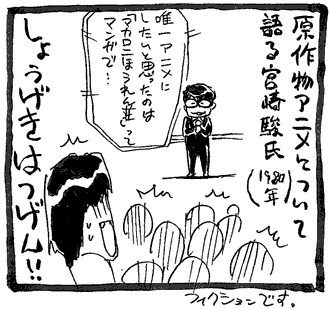 原作物アニメについて
語る宮崎駿氏
(1980年)
唯一アニメに
したいと思ったのは
「マカロニほうれん荘」って
マンガで…
しょうげきはつげん!!
フィクションです。